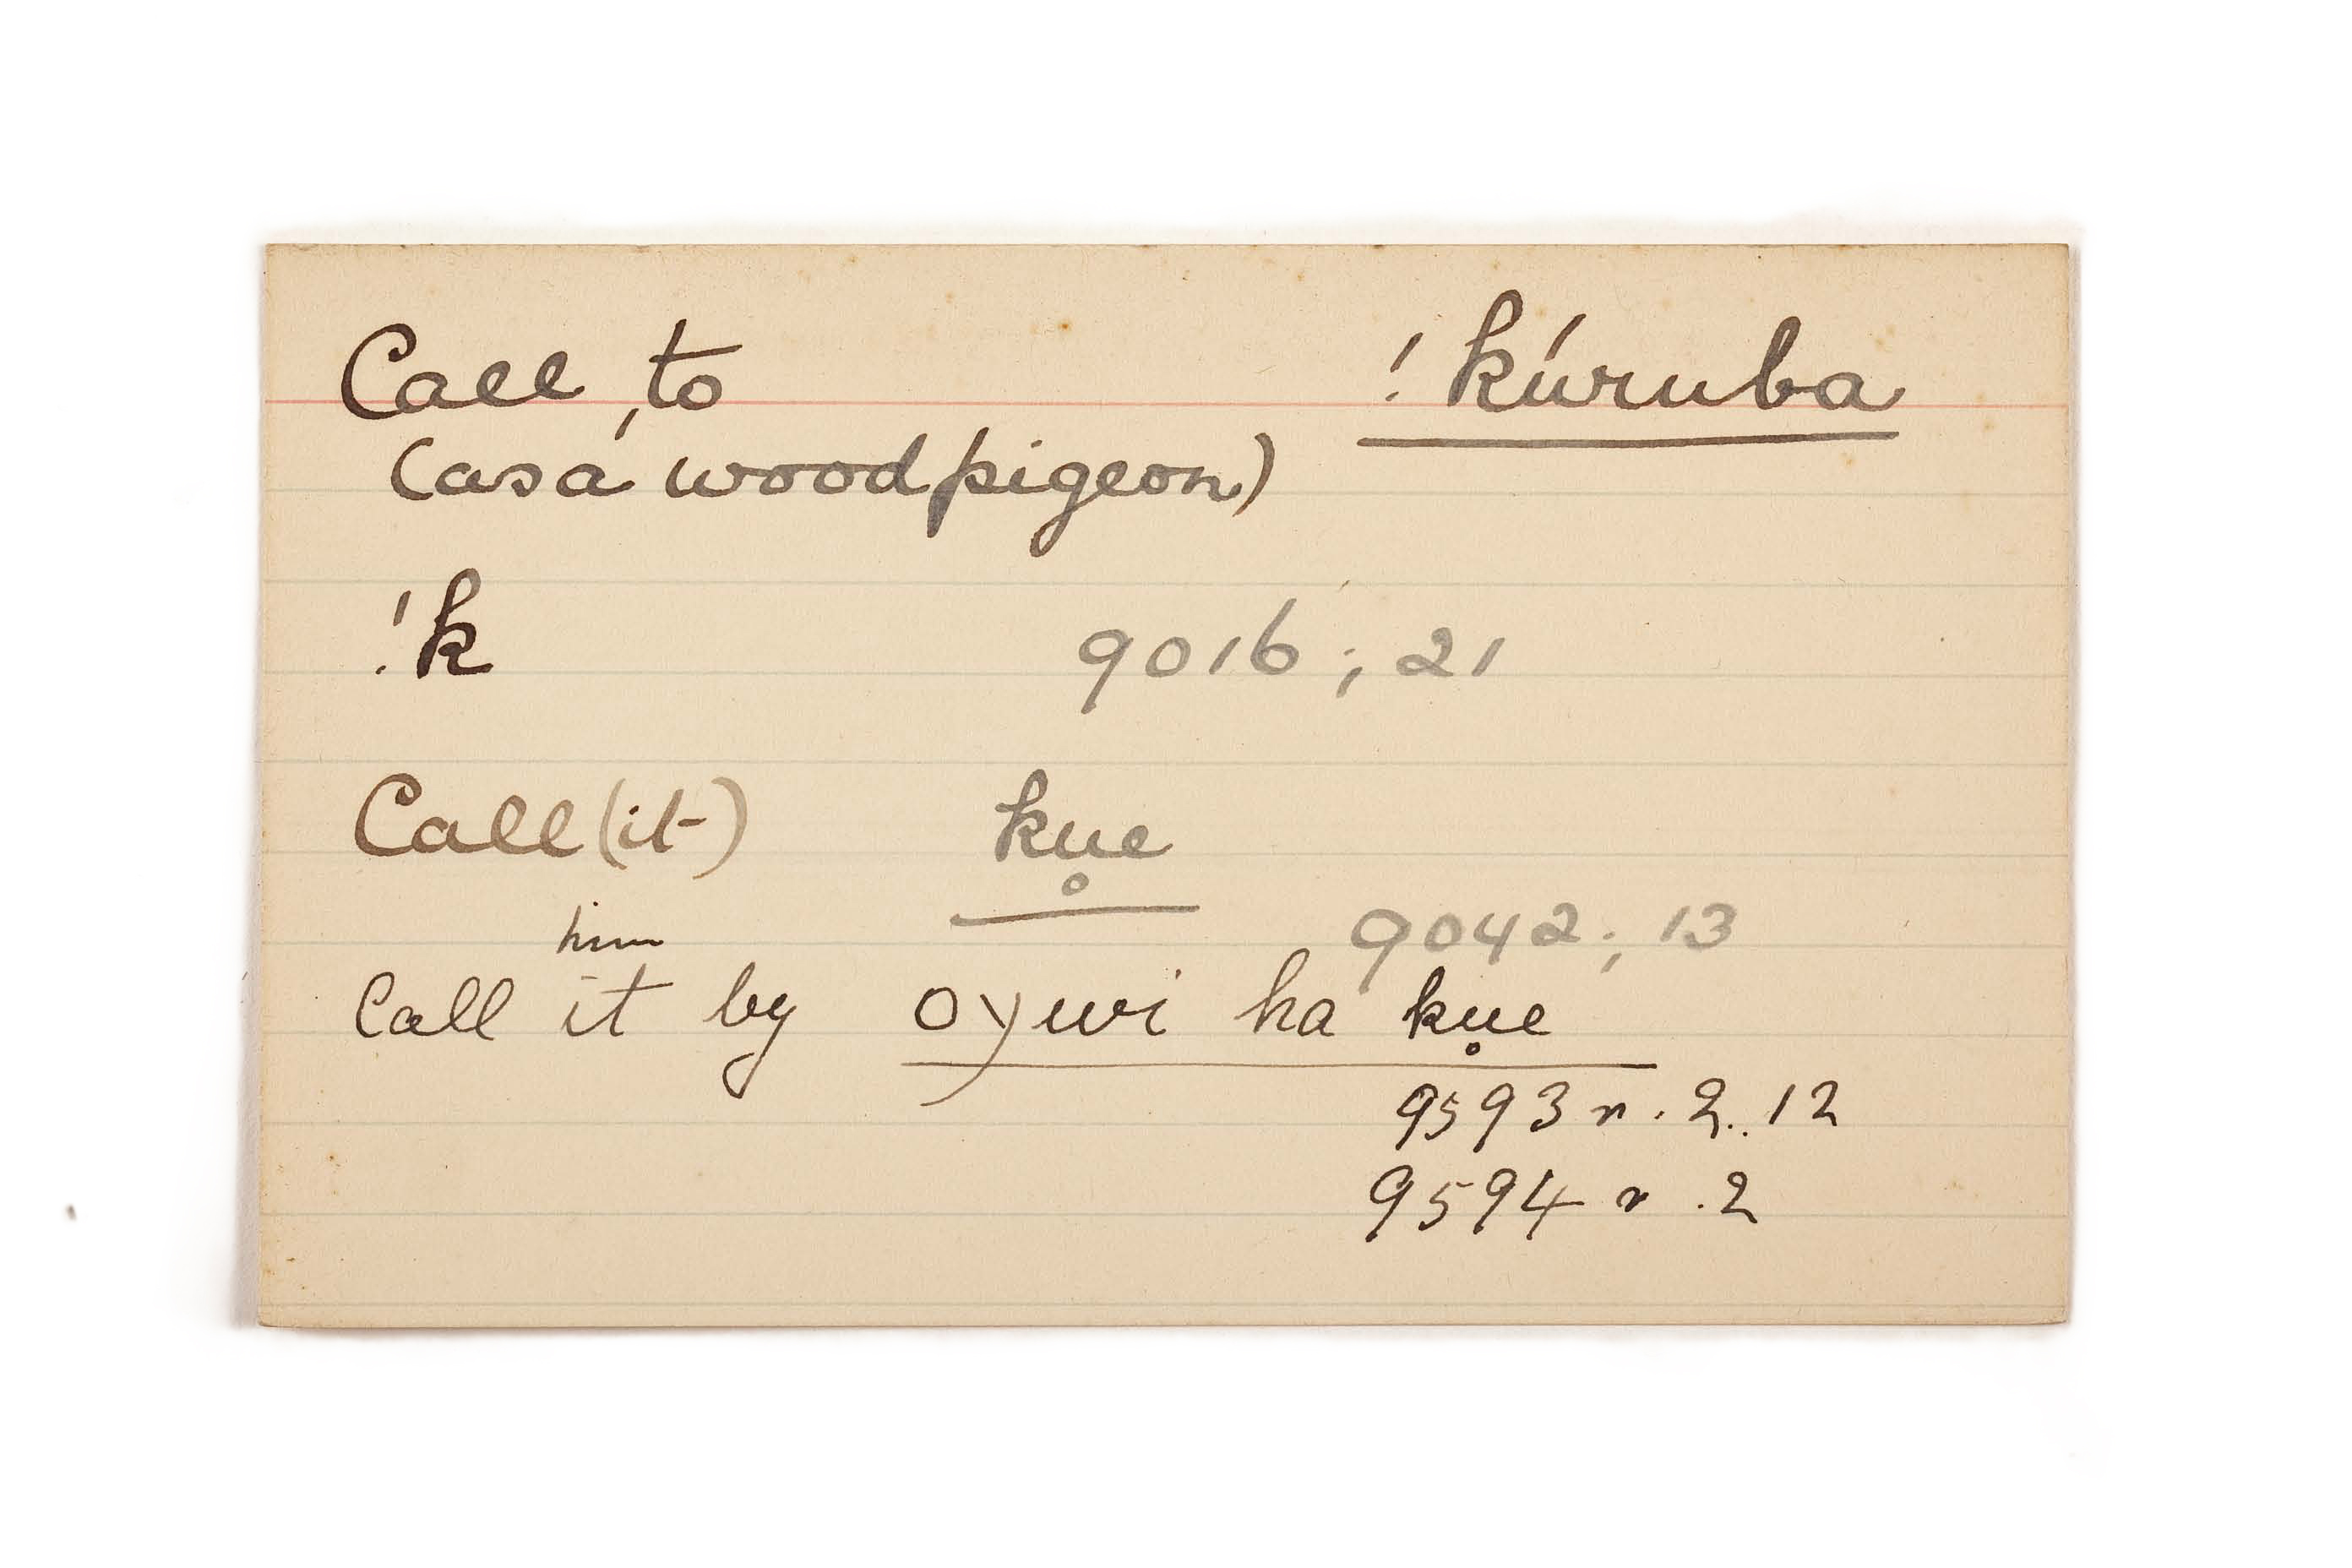 Call, to !kúruba
(as a wood pigeon)
!k 9016; 21
Call (it) ku̥e
9042; 13
him
Call it by oywi ha ku̥e
9593 r. 2.. 12
9594 r. 2